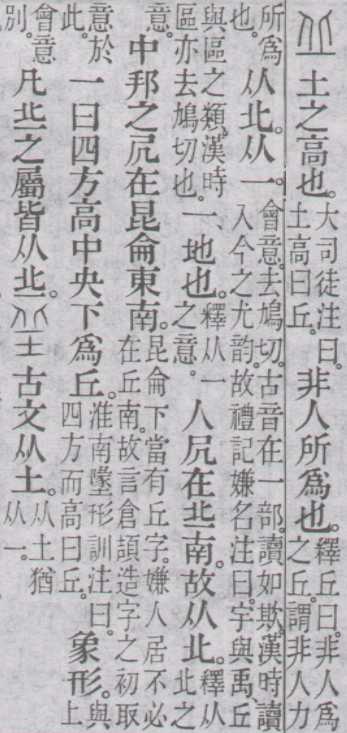 丠土之高也。大司徒注曰。土高曰丘。非人所爲也。釋丘曰。非人爲之丘。謂非人力
所爲也。从北。从一。會意。去鳩切。古音在一部。讀如欺。漢時讀入今之尤韵。故禮記嫌名注曰。宇與禹丘
與區之類。漢時區亦去鳩切也。一、地也。釋从一之意。人凥在丠南。故从北。釋从北之
意。中邦之凥在昆侖東南。昆侖下當有丘字。嫌人居不必在丘南。故言倉頡造字之初取
意於此。一曰四方高中央下爲丘。淮南墬形訓注曰。四方而高曰丘。象形。與上
會意別。凡丠之屬皆从丠。𡊣古文从土。从土猶从一。